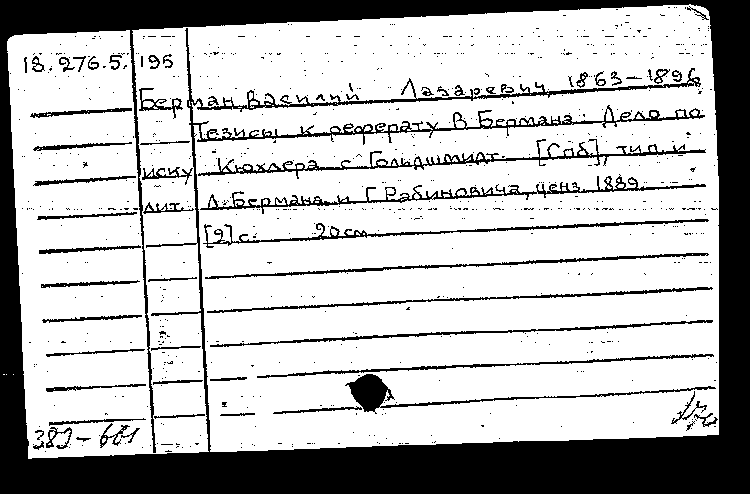 18.276.5.195
Берман, Василий Лазаревич, 1863-1896
Тезисы к реферату В. Бермана: Дело по
иску Кюхлера с Гольдшмидт. [Спб], тип. и
лит. Л. Бермана и Г. Рабиновича, ценз. 1889.
[2] с. 20 см
389-601